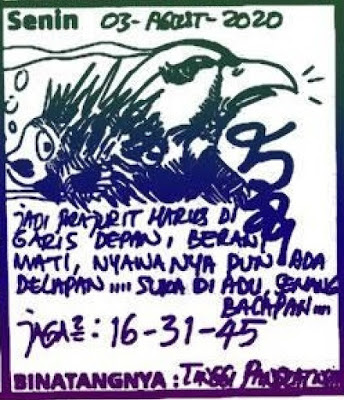 Senin 03-AGUST-2020
JADI PRAJURIT HARUS DI
GARIS DEPAN, BERANI
MATI, NYAWANYA PUN ADA
DELAPAN.... SUKA DI ADU, SENANG
BALAPAN...
JAGA2: 16-31-45
BINATANGNYA : TINGGI